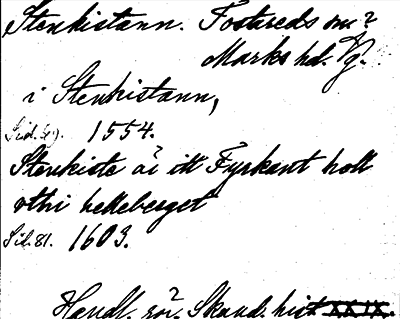 Stenkistann. Fostereds sn?
Marks hd. Vg.
i Stenkistann,
Sid. 1554.
Stenkiste är itt Fyrkant holt
uthi helleberget
Sid. 81. 1603.
Handl. rör. Skand. hist XXIX.